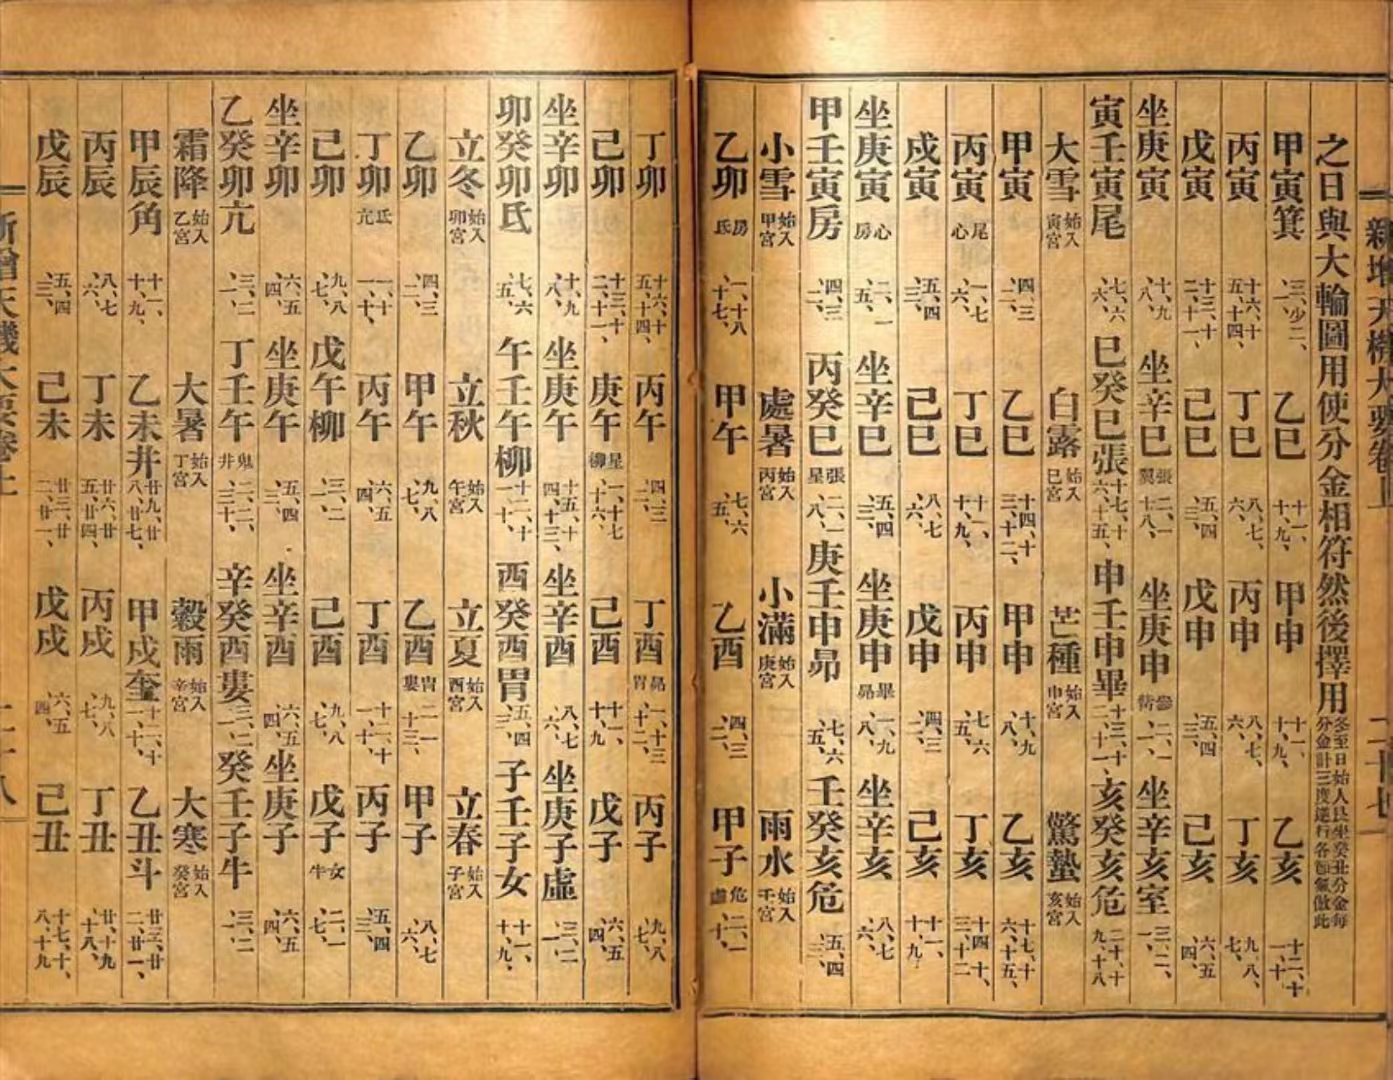 新增天機大要卷上 二十七
之日與大輪圖用使分金相符然後擇用 冬至日始人艮坐癸丑分金每分金計三度進行各節氣倣此
甲寅箕 三、少二、一、 乙巳 十一、十、九、 甲申 十一、十、九、 乙亥 十二、十一、十
丙寅 十六、十五、十四、 丁巳 八、七、六、 丙申 八、七、六、 丁亥 九、八、七、
戊寅 十三、十二、十一、 己巳 五、四、三、 戊申 五、四、三、 己亥 六、五、四、
坐庚寅 十、九、八、 坐辛巳 張翼 二、一、十八、 坐庚申 參觜 二、一、一、 坐辛亥室 三、二、一、
寅壬寅尾 七、六、六、 巳癸巳張 十七、十六、十五、 申壬申畢 十三、十二、十一、 亥癸亥危 二十、十九、十八
大雪 始入寅宮 白露 始入巳宮 芒種 始入申宮 驚蟄 始入亥宮
甲寅 四、三、二、 乙巳 十四、十三、十二、 甲申 十、九、八、 乙亥 十七、十六、十五、
丙寅 尾心 一、七、六、 丁巳 十一、十、九、 丙申 七、六、五、 丁亥 十四、十三、十二
戊寅 五、四、三、 己巳 八、七、六、 戊申 四、三、二、 己亥 十一、十、九、
坐庚寅 心房 二、一、五、 坐辛巳 五、四、三、 坐庚申 畢昴 一、九、八、 坐辛亥 八、七、六、
甲壬寅房 四、三、二、 丙癸巳 張星 二、一、八、 庚壬申昴 七、六、五、 壬癸亥危 五、四、三、
小雪 始入甲宮 處暑 始入丙宮 小滿 始入庚宮 雨水 始入壬宮
乙卯 房氐 一、十八、十七、 甲午 七、六、五、 乙酉 四、三、二、 甲子 危虛 二、一、十、
丁卯 十六、十五、十四、 丙午 四、三、二、 丁酉 昴胃 一、十三、十二、 丙子 九、八、七、
己卯 十三、十二、十一、 庚午 星柳 一、十七、十六、 己酉 十一、十、九、 戊子 六、五、四、
坐辛卯 十、九、八、 坐庚午 十五、十四、十三、 坐辛酉 八、七、六、 坐庚子虛 三、二、一、
卯癸卯氐 七、六、五、 午壬午柳 十二、十一、十、 酉癸酉胃 五、四、三、 子壬子女 十一、十、九、
立冬 始入卯宮 立秋 始入午宮 立夏 始入酉宮 立春 始入子宮
乙卯 四、三、二、 甲午 九、八、七、 乙酉 胃婁 二、一、十三、 甲子 八、七、六、
丁卯 氐亢 一、十、一、 丙午 六、五、四、 丁酉 十二、十一、十、 丙子 五、四、三、
己卯 九、八、七、 戊午柳 三、二、一、 己酉 九、八、七、 戊子 女牛 二、一、七、
坐辛卯 六、五、四、 坐庚午 五、四、三、 坐辛酉 六、五、四、 坐庚子 六、五、四、
乙癸卯亢 三、二、一、 丁壬午 鬼井 二、一、三十、 辛癸酉婁 三、二、一、 癸壬子牛 三、二、一、
霜降 始入乙宮 大暑 始入丁宮 穀雨 始入辛宮 大寒 始入癸宮
甲辰角 十一、十、九、 乙未井 廿九、廿八、廿七、 甲戌奎 十二、十一、十、 乙丑斗 廿三、廿二、廿一、
丙辰 八、七、六、 丁未 廿六、廿五、廿四、 丙戌 九、八、七、 丁丑 廿、十九、十八、
戊辰 五、四、三、 己未 廿三、廿二、廿一、 戊戌 六、五、四、 己丑 十七、十八、十九
新增天機大要卷上 二十八